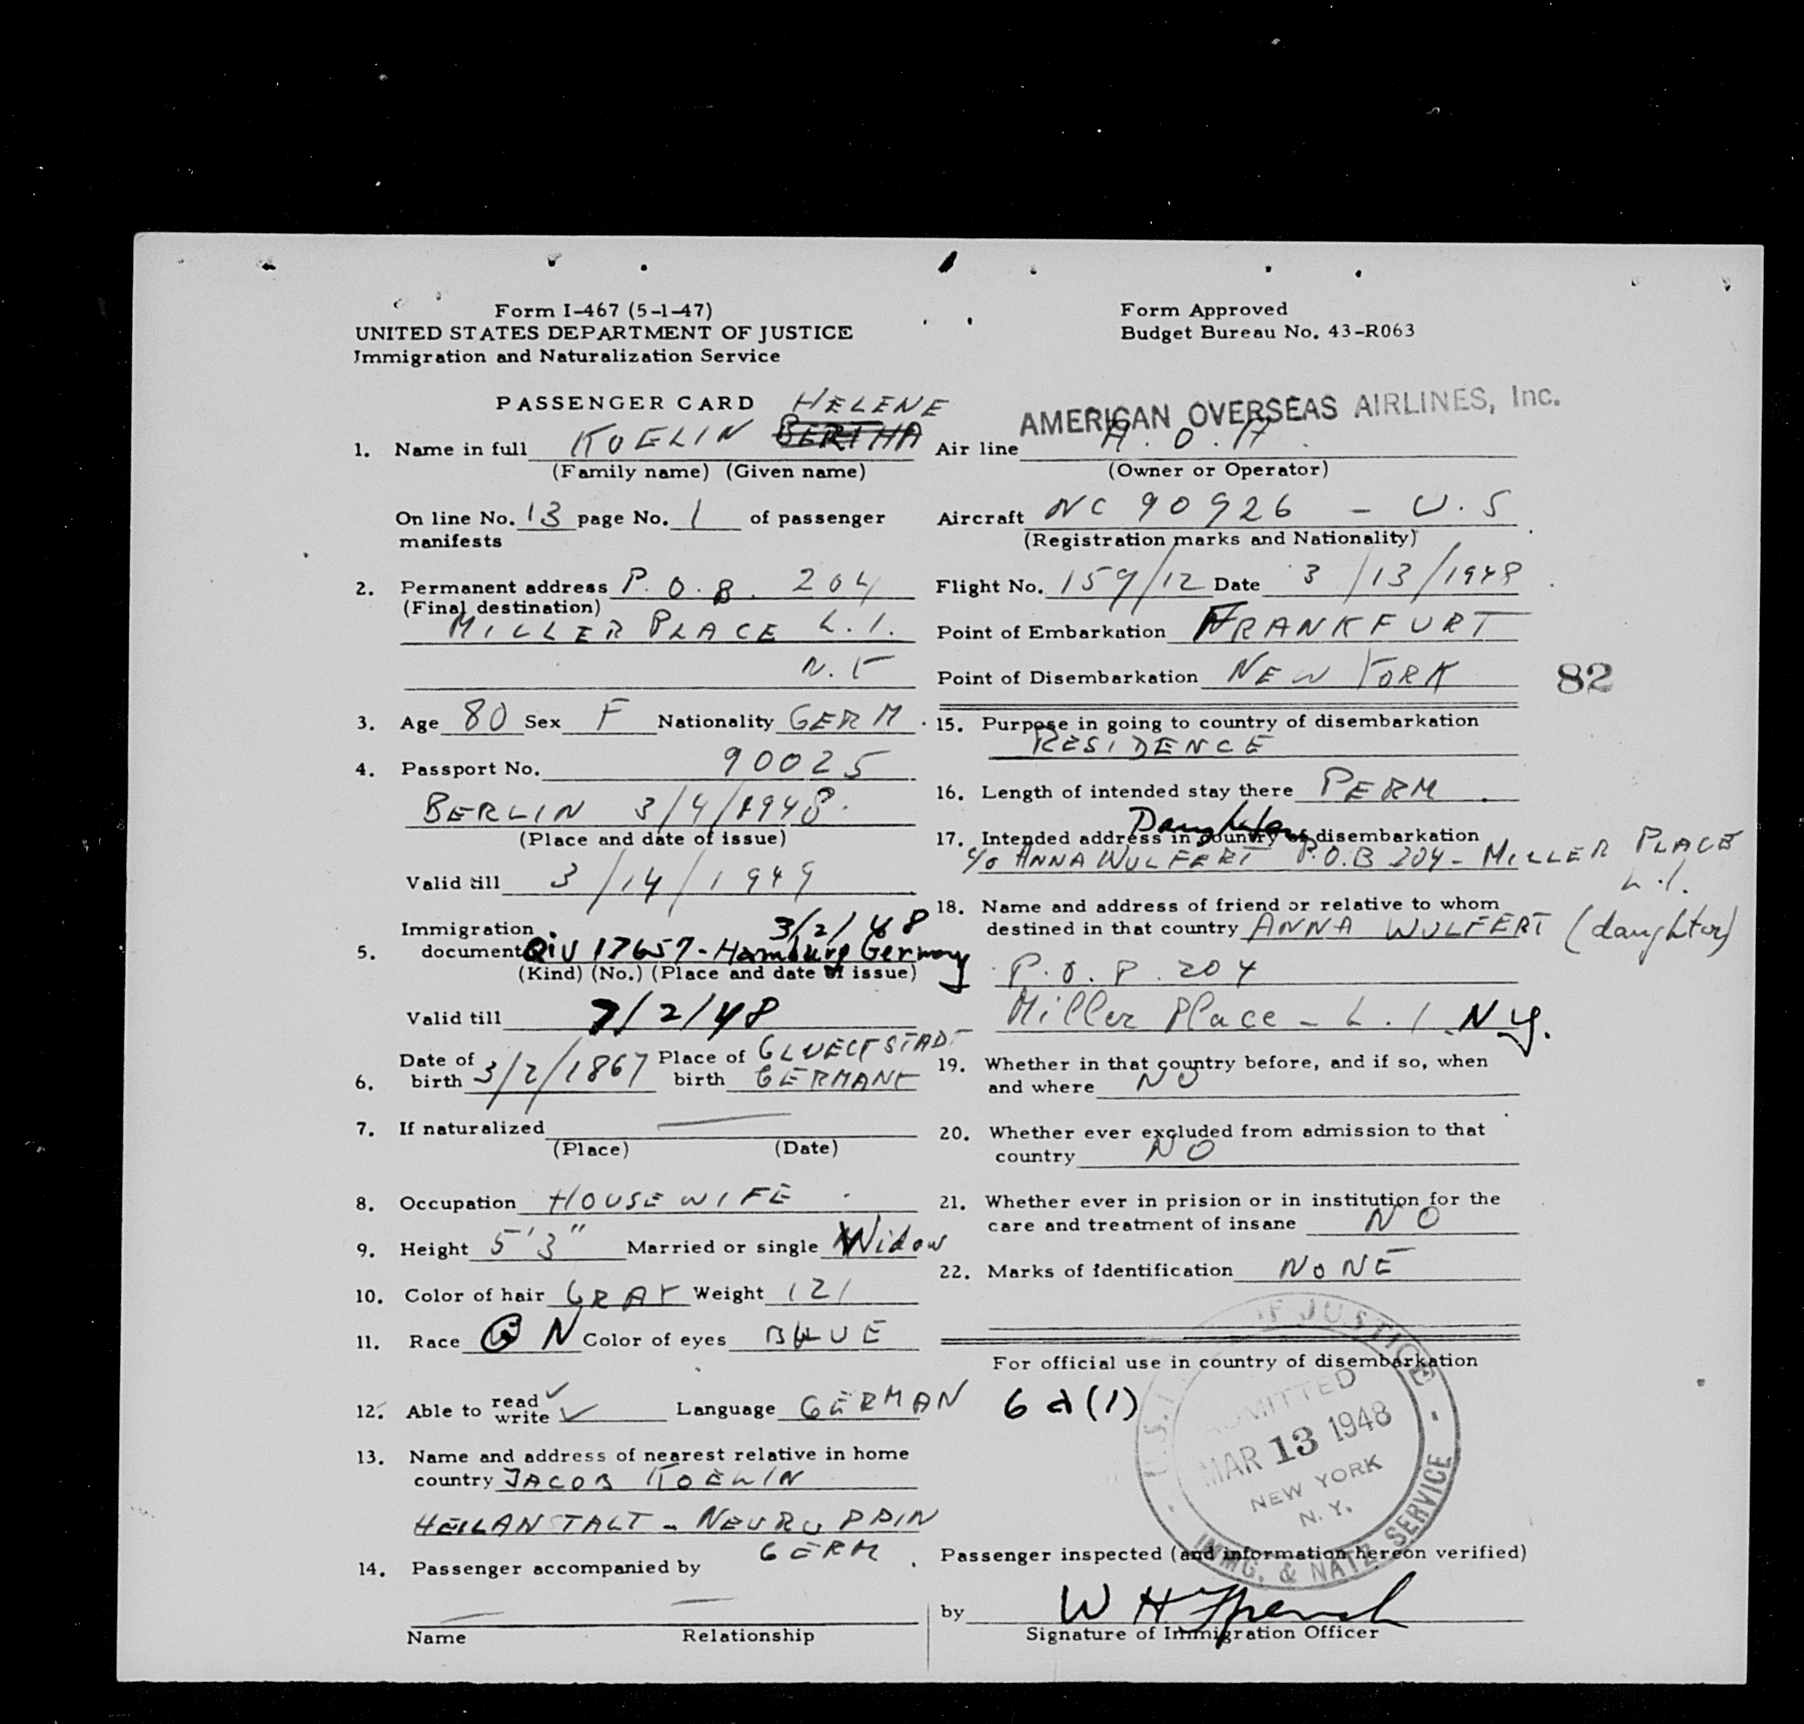 Form I-467 (5-1-47)
UNITED STATES DEPARTMENT OF JUSTICE
Immigration and Naturalization Service
Form Approved
Budget Bureau No. 43-R063
PASSENGER CARD
HELENE
1. Name in full KOELIN BERTHA
(Family name) (Given name)
On line No. 13 page No. 1 of passenger
manifests
2. Permanent address P.O.B. 204
(Final destination)
MILLER PLACE L.I.
N.Y
3. Age 80 Sex F Nationality GERM.
4. Passport No. 90025
BERLIN 3/4/1948.
(Place and date of issue)
Valid till 3/14/1949
Immigration 3/2/48
5. document QIV 17657 - Hamburg Germany
(Kind) (No.) (Place and date of issue)
Valid till 7/2/48
6. Date of birth 3/2/1867 Place of birth GLUECKSTADT
GERMANY
7. If naturalized
(Place) (Date)
8. Occupation HOUSEWIFE
9. Height 5'3" Married or single Widow
10. Color of hair GRAY Weight 121
11. Race N Color of eyes BLUE
12. Able to read ✓
write ✓ Language GERMAN
13. Name and address of nearest relative in home
country JACOB KOELIN
HEILANSTALT - NEURUPPIN
GERM.
14. Passenger accompanied by
Name Relationship
AMERICAN OVERSEAS AIRLINES, Inc.
Air line A.O.A
(Owner or Operator)
Aircraft NC 90926 - U.S
(Registration marks and Nationality)
Flight No. 159/12 Date 3/13/1948
Point of Embarkation FRANKFURT
Point of Disembarkation NEW YORK
82
15. Purpose in going to country of disembarkation
RESIDENCE
16. Length of intended stay there PERM.
Daughter
17. Intended address in country of disembarkation
c/o ANNA WULFERT P.O.B 204 - MILLER PLACE
L.I.
18. Name and address of friend or relative to whom
destined in that country ANNA WULFERT (daughter)
P.O.B. 204
Miller Place - L.I. N.Y.
19. Whether in that country before, and if so, when
and where NO
20. Whether ever excluded from admission to that
country NO
21. Whether ever in prision or in institution for the
care and treatment of insane NO
22. Marks of identification NONE
For official use in country of disembarkation
6 d (1)
U.S. OF JUSTICE
ADMITTED
MAR 13 1948
NEW YORK
N.Y.
IMMG. & NATZ. SERVICE
Passenger inspected (and information hereon verified)
by W H
Signature of Immigration Officer